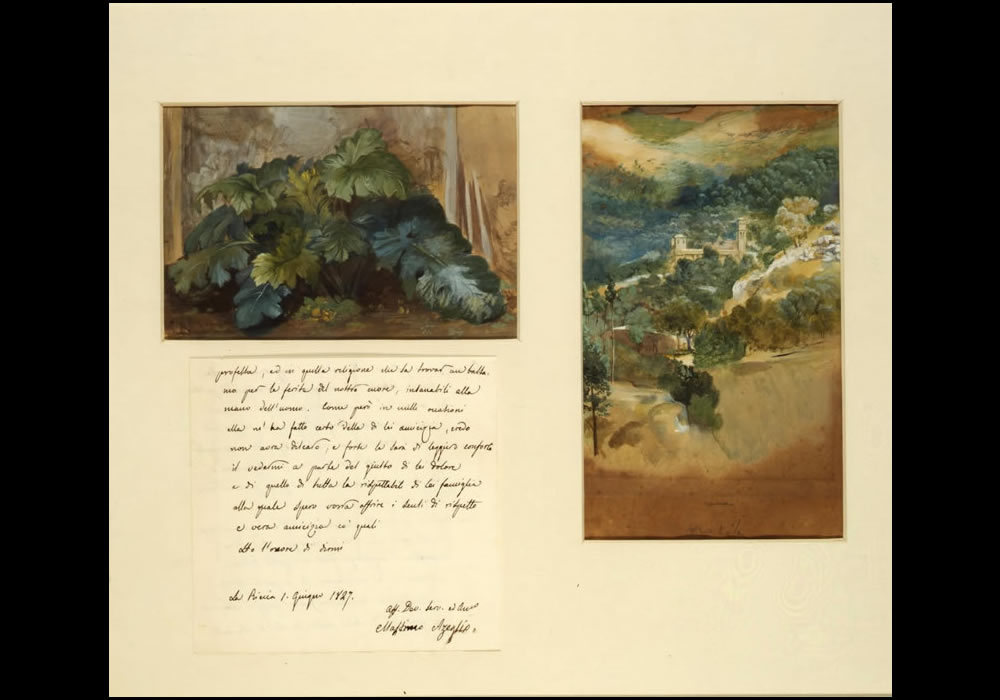 profetta, ed in quella religione che sa trovar un balsa
mo per le ferite del nostro cuore, insanabili alla
mano dell'uomo. Come però in mille occasioni
ella m'ha fatto certo della di lei amicizia, credo
non avrà discaro, e forse le sarà di leggiero conforto
il vedermi a parte del giusto di lei dolore
e di quello di tutta la rispettabil di lei famiglia
alla quale spero vorrà offrire i sensi di rispetto
e vera amicizia co' quali
Ho l'onore di dirmi
La Riccia 1. Giugno 1827.
Aff. Dev. Serv. ed Amco
Massimo Azeglio